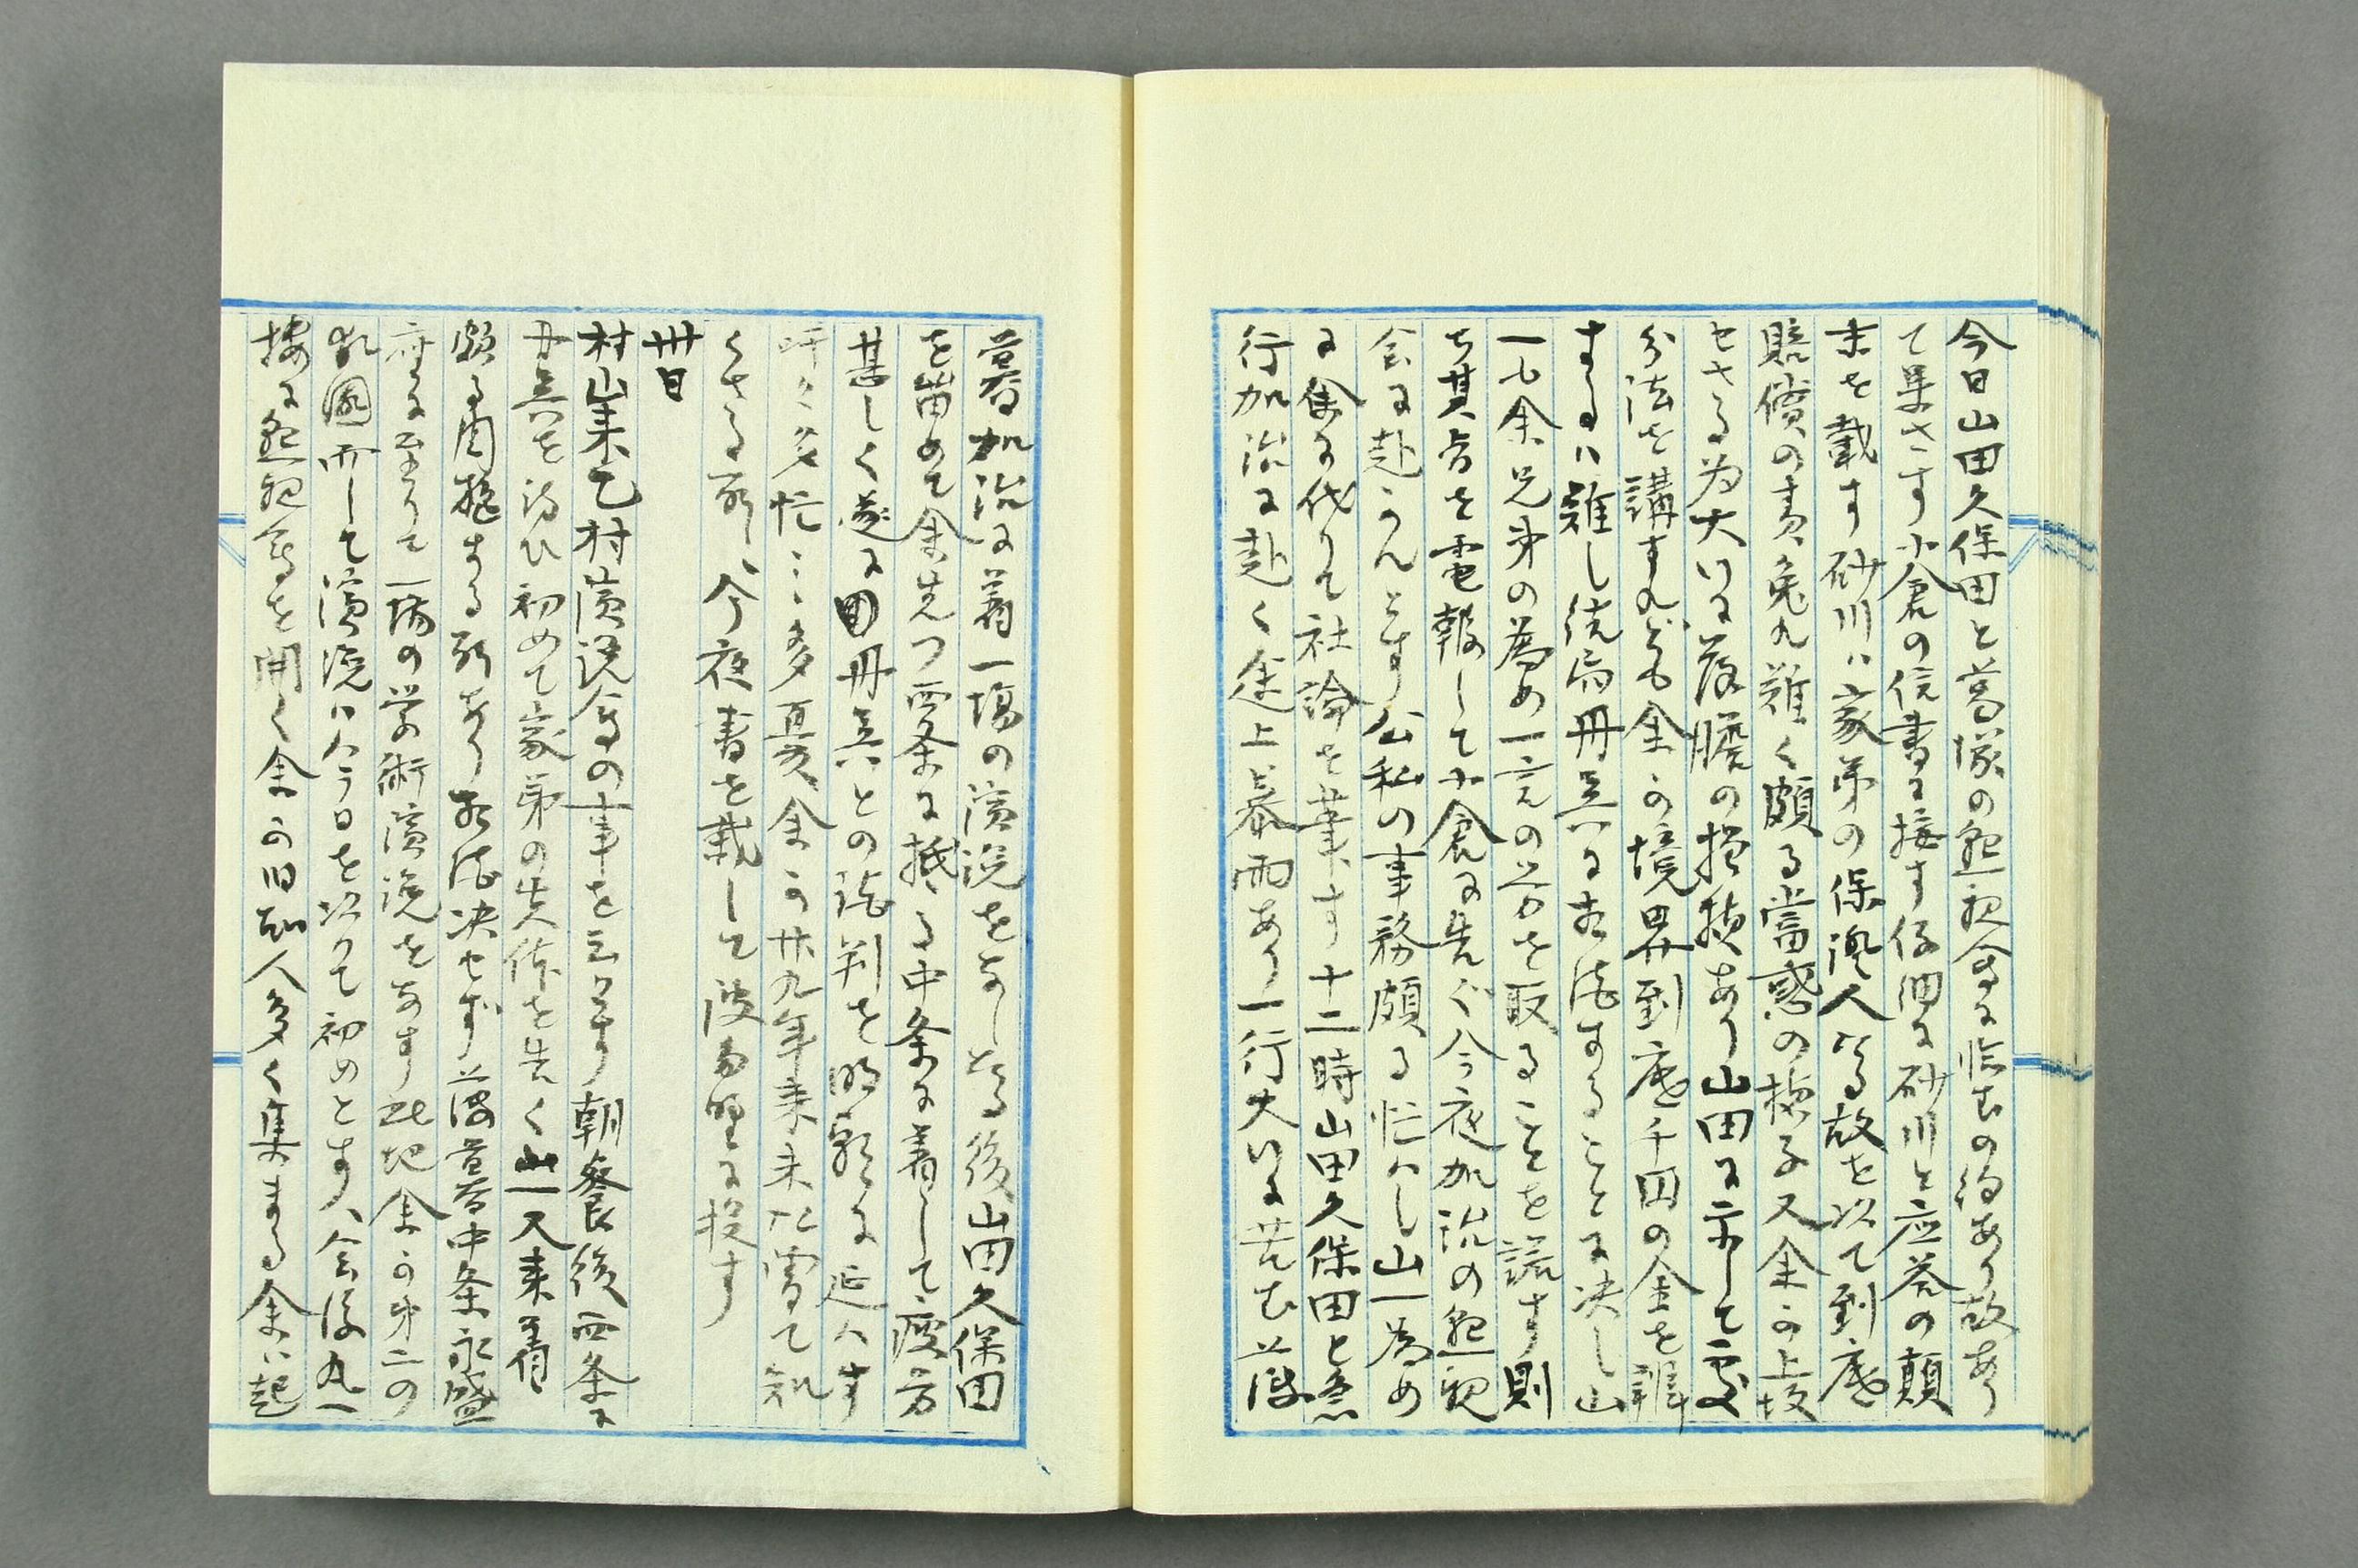 今日山田久保田と葛塚の懇親会に臨むの約あり故あり
て果さす小倉の信書に接す仔細に砂川と応答の顛
末を載す砂川ハ家弟の保澳人なる故を以て到底
賠償の責免れ難く頗る当惑の様子又余の上坂
せさる為大いに落胆の模様あり山田に示して処
分法を講すれども余の境界到底千円の金を弁
するハ難し結局丹呉に相談することに決し山
一も余兄弟の為め一言の労を取ることを諾す則
ち其旨を電報して小倉に告ぐ今夜加治の懇親
会に赴かんとす公私の事務頗る忙ハし山一為め
に余に代りて社論を草す十二時山田久保田と
行加治に赴く途上暴雨あり一行大いに苦む薄
暮加治に着一場の演説をなしたる後山田久保田
を留めて余先つ西条に抵る中条に着して疲労
甚しく遂に丹呉との談判を明朝に延ハす
吁々多忙々々多夏余の廿九年来未だ曽て知
らさる所、今夜書を裁して渡辺に投す
卅日
村山来乞村演説会の事を云々す朝餐後西条に
丹呉を訪ひ初めて家弟の失体を告く山一又来着
頗る周旋する所あり相談決せず薄暮中条永盛
座に至りて一場の学術演説をなす此地余の第二の
故国而して演説ハ今日を以て初めとす会後丸一
楼に懇親会を開く余の旧知人多く集まる余ハ起